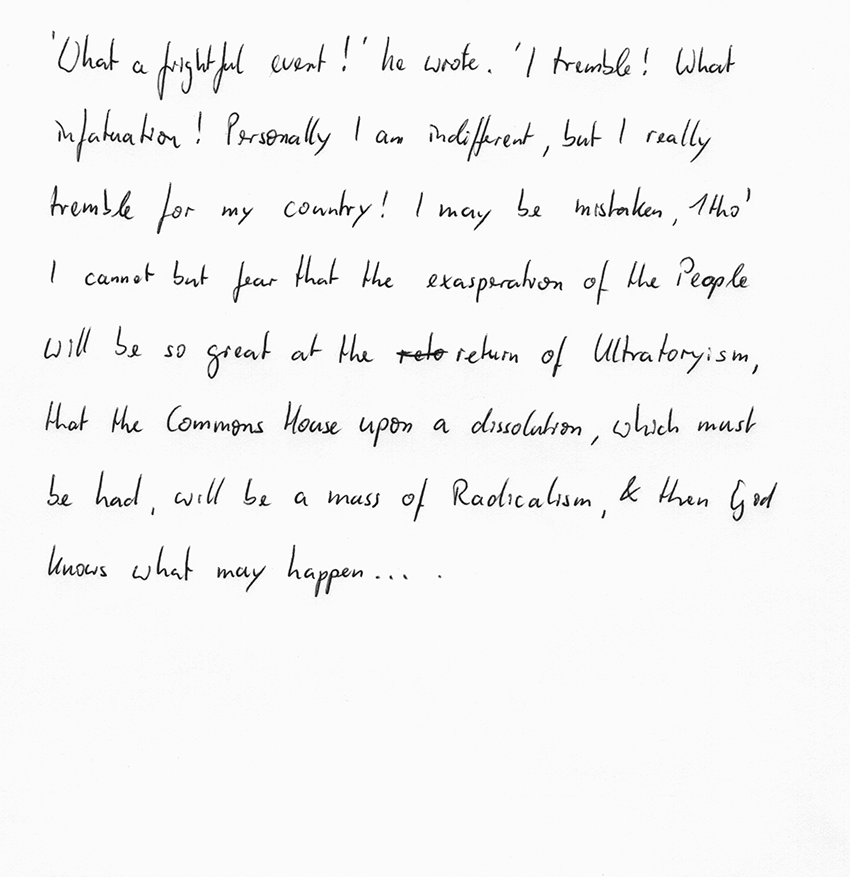 'What a frightful event!' he wrote. 'I tremble! What
infatuation! Personally I am indifferent, but I really
tremble for my country! I may be mistaken, 1tho'
I cannot but fear that the exasperation of the People
will be so great at the return of Ultratoryism,
that the Commons House upon a dissolution, which must
be had, will be a mass of Radicalism, & then God
knows what may happen... .